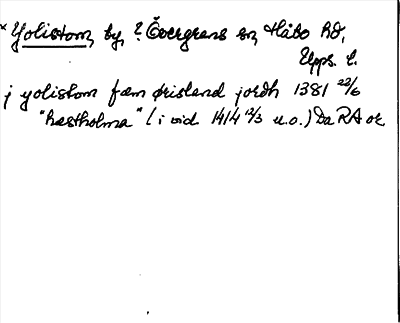 * Yolistom, by, ? Övergrans sn, Håbo hd,
Upps. l.
j yolistom fæm ørisland jordh 1381 22/6
"hæstholma" (i vid. 1414 12/3 u.o.) Da RA or.